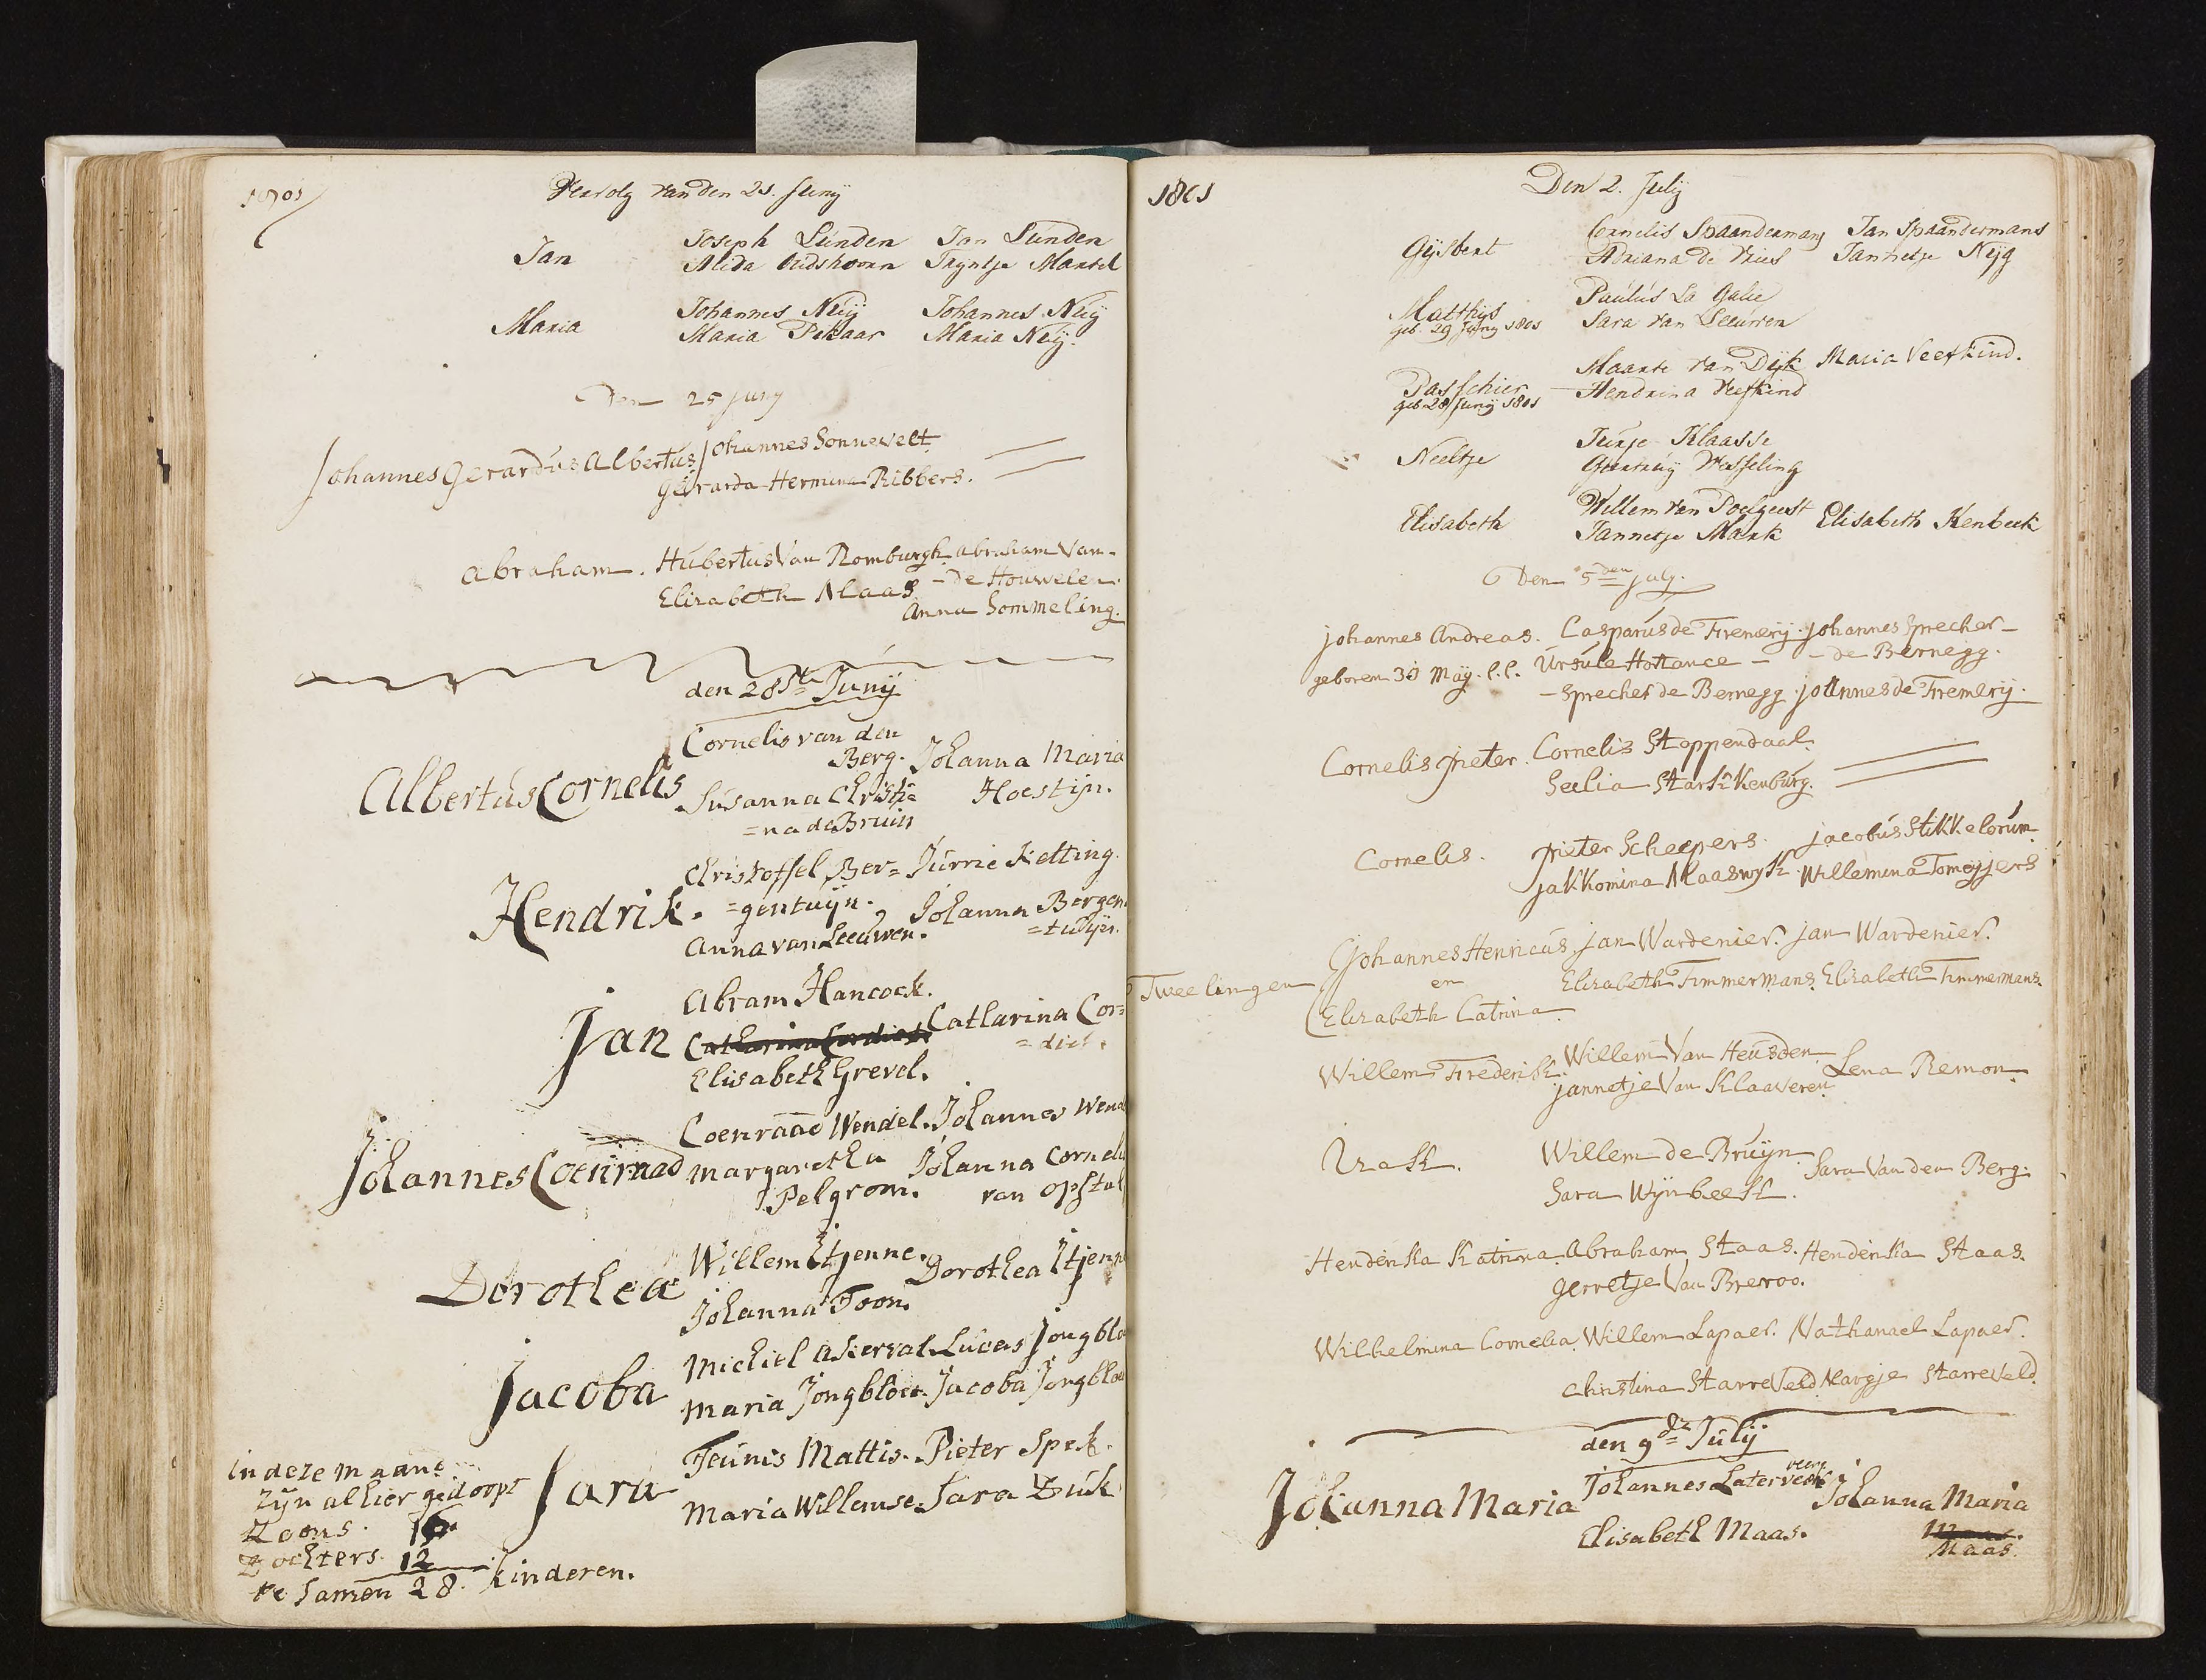 1801
Vervolg van den 21. Juny
Jan
Joseph Lunden Jan Lunden
Alida Oudshoorn Tryntje Martel
Maria
Johannes Neÿ Johannes Neÿ
Maria Pekaar Maria Neÿ.
Den 25 juny
Johannes Gerardus Albertus Johannes Sonnevelt
Gerarda Hermina Ribbers.
Abraham. Hubertus Van Romburgh. Abraham Van
Elizabeth Maas - de Houwelen
Anna Sommeling.
den 28ste Junij
Cornelis van den
Berg. Johanna Maria
Albertus Cornelis
Susanna Christia Hoestijn.
= na de Bruin
Christoffel Ber= Jurrie Ketting.
Hendrik. =gentuijn. Johanna Bergen
Anna van Leeuwen. =tuijn.
Abram Hancock.
Jan Catharina Cordiet Catharina Cor=
=diet.
Elisabeth Grevel.
Coenraad Wendel. Johannes Wend
Johannes Coenraad Margaretha Johanna Corneli
Pelgrom. van Opstal
Willem Etjenne.
Dorothea Dorothea Etjenn
Johanna Toon.
Michiel Akerval Lucas Jongblo
Jacoba
Maria Jongbloet. Jacoba Jongbloe
Teunis Mattis. Pieter Spek.
Sara
Maria Willemse. Sara Buk
in deze maand
Zijn alhier gedoopt
Zoons. 16
Dochters. 12
te Samen 28. Kinderen.
1801
Den 2. July
Gijsbert
Cornelis Spaandermans Jan Spaandermans
Adriana de Vries Jannetje Nijg
Matthijs
geb. 29 Juny 1801
Paulus La Galie
Sara van Leeuwen
Passchier
geb 28 Junij 1801
Maarte van Dijk Maria Veefkind.
Hendrina Veefkind
Neeltje
Teunje Klaasse
Geertruij Wesseling
Elisabeth
Willem van Poelgeest Elisabeth Kenbeek
Jannetje Mank
Den 5den july.
Johannes Andreas. Casparus de Fremerij. Johannes Sprecher
geboren 30 Maÿ. l.l. Ursule Hortance - - de Bernegg.
- Sprecher de Bernegg. Johannes de Fremerij.
Cornelis Pieter. Cornelis Stoppendaal.
Seelia Starkkenburg.
Cornelis. Pieter Scheepers. Jacobus Stikkelorum
Jakkomina Maaswyk. Willemina Tomeyjers
Johannes Henricus Jan Wardenier. Jan Wardenier.
Tweelingen en Elizabeth Timmermans. Elizabeth Timmermans.
Elizabeth Catrina.
Willem Frederik. Willem Van Heusden. Lena Remon.
Jannetje Van Klaaveren
Izak. Willem de Bruijn. Sara Van den Berg.
Sara Wijnbeek.
Hendenka Katrina. Abraham Staas. Hendenka Staas.
Gerretje Van Breroo.
Wilhelmina Cornelia. Willem Lapaer. Nathanael Lapaer.
Christina Starreveld Margje Starreveld
den 9de Julij
Johanna Maria Johannes Laterveer Johanna Maria
Elisabeth Maas. Maas.